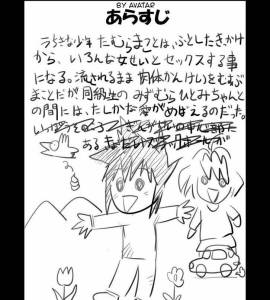 BY AVATAR
あらすじ
少年 たむらまことは、ふとしたきっかけ
から、いろんな女せいとセックスする事
になる。流されるまま肉体かんけいをむすぶ
まことだが同級生のみずむらひとみちゃんと
の間には、たしかな愛がめばえるのだった。